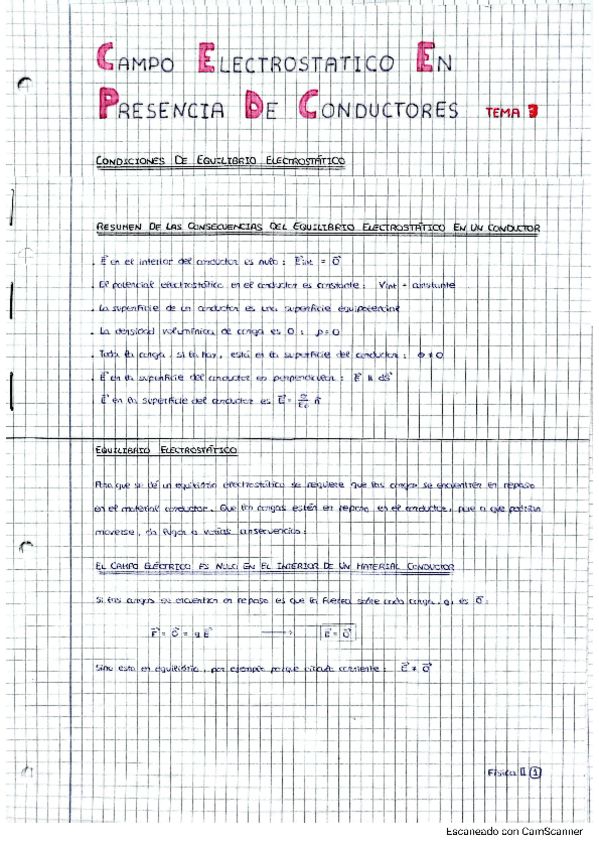 CAMPO ELECTROSTATICO EN
PRESENCIA DE CONDUCTORES TEMA 3
CONDICIONES DE EQUILIBRIO ELECTROSTÁTICO
RESUMEN DE LAS CONSECUENCIAS DEL EQUILIBRIO ELECTROSTÁTICO EN UN CONDUCTOR
. E⃗ en el interior del conductor es nulo : E⃗int = 0⃗
. El potencial electrostático en el conductor es constante : Vint = constante
. La superficie de un conductor es una superficie equipotencial
. La densidad volumínica de carga es 0 : ρ=0
. Toda la carga, si la hay, está en la superficie del conductor : σ ≠ 0
. E⃗ en la superficie del conductor es perpendicular : E⃗ ∥ ds⃗
. E⃗ en la superficie del conductor es E⃗ = σ/ε₀ n⃗
EQUILIBRIO ELECTROSTÁTICO
Para que se dé un equilibrio electrostático se requiere que las cargas se encuentren en reposo
en el material conductor. Que las cargas estén en reposo en el conductor, pese a que podrían
moverse, da lugar a varias consecuencias:
EL CAMPO ELÉCTRICO ES NULO EN EL INTERIOR DE UN MATERIAL CONDUCTOR
Si las cargas se encuentran en reposo es que la fuerza sobre cada carga, q, es 0⃗:
F⃗ = 0⃗ = q E⃗ → E⃗ = 0⃗
Si no esta en equilibrio, por ejemplo porque circule corriente : E⃗ ≠ 0⃗
Física II 1
Escaneado con CamScanner